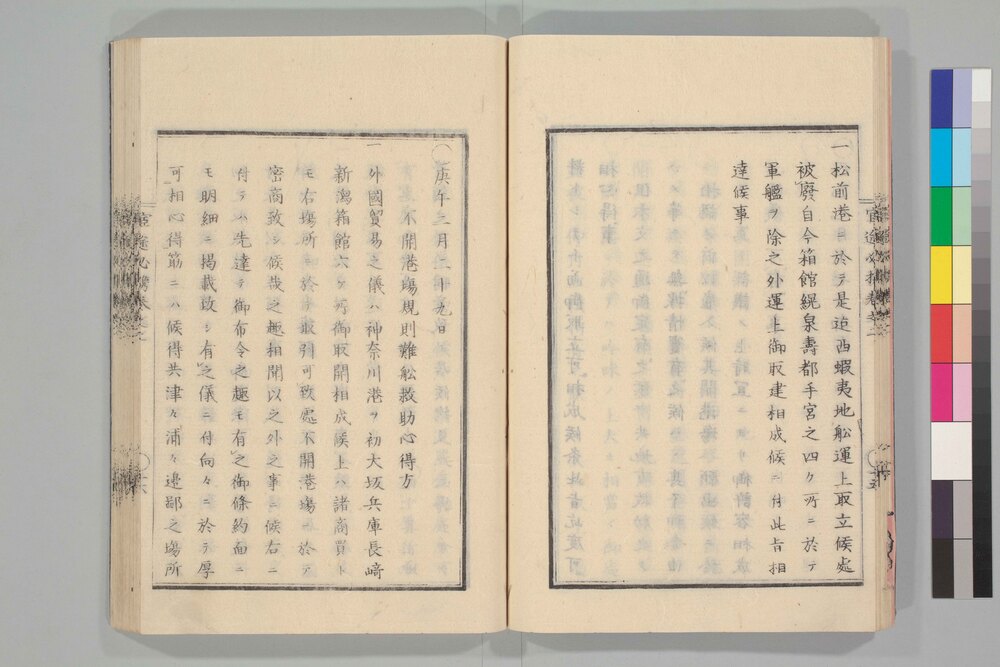 一松前港ニ於テ是迄西蝦夷地舩運上取立候處
被廢自今箱館繩泉壽都手宮之四ケ所ニ於テ
軍艦ヲ除之外運上御取建相成候ニ付此旨相
達候事
〇庚午三月二十九日
不開港塲規則難舩救助心得方
一外國貿易之儀ハ神奈川港ヲ初大坂兵庫長﨑
新潟箱館六ケ所御取開相成候上ハ諸商買ト
モ右塲所ニ於テ取引可致處不開港塲ニ於テ
密商致シ候哉之趣相聞以之外之事ニ候右ニ
付テハ先達テ御布令之趣モ有之御條約面ニ
モ明細ニ掲載致シ有之儀ニ付向々ニ於テ厚
可相心得筋ニハ候得共津々浦々邊鄙之塲所